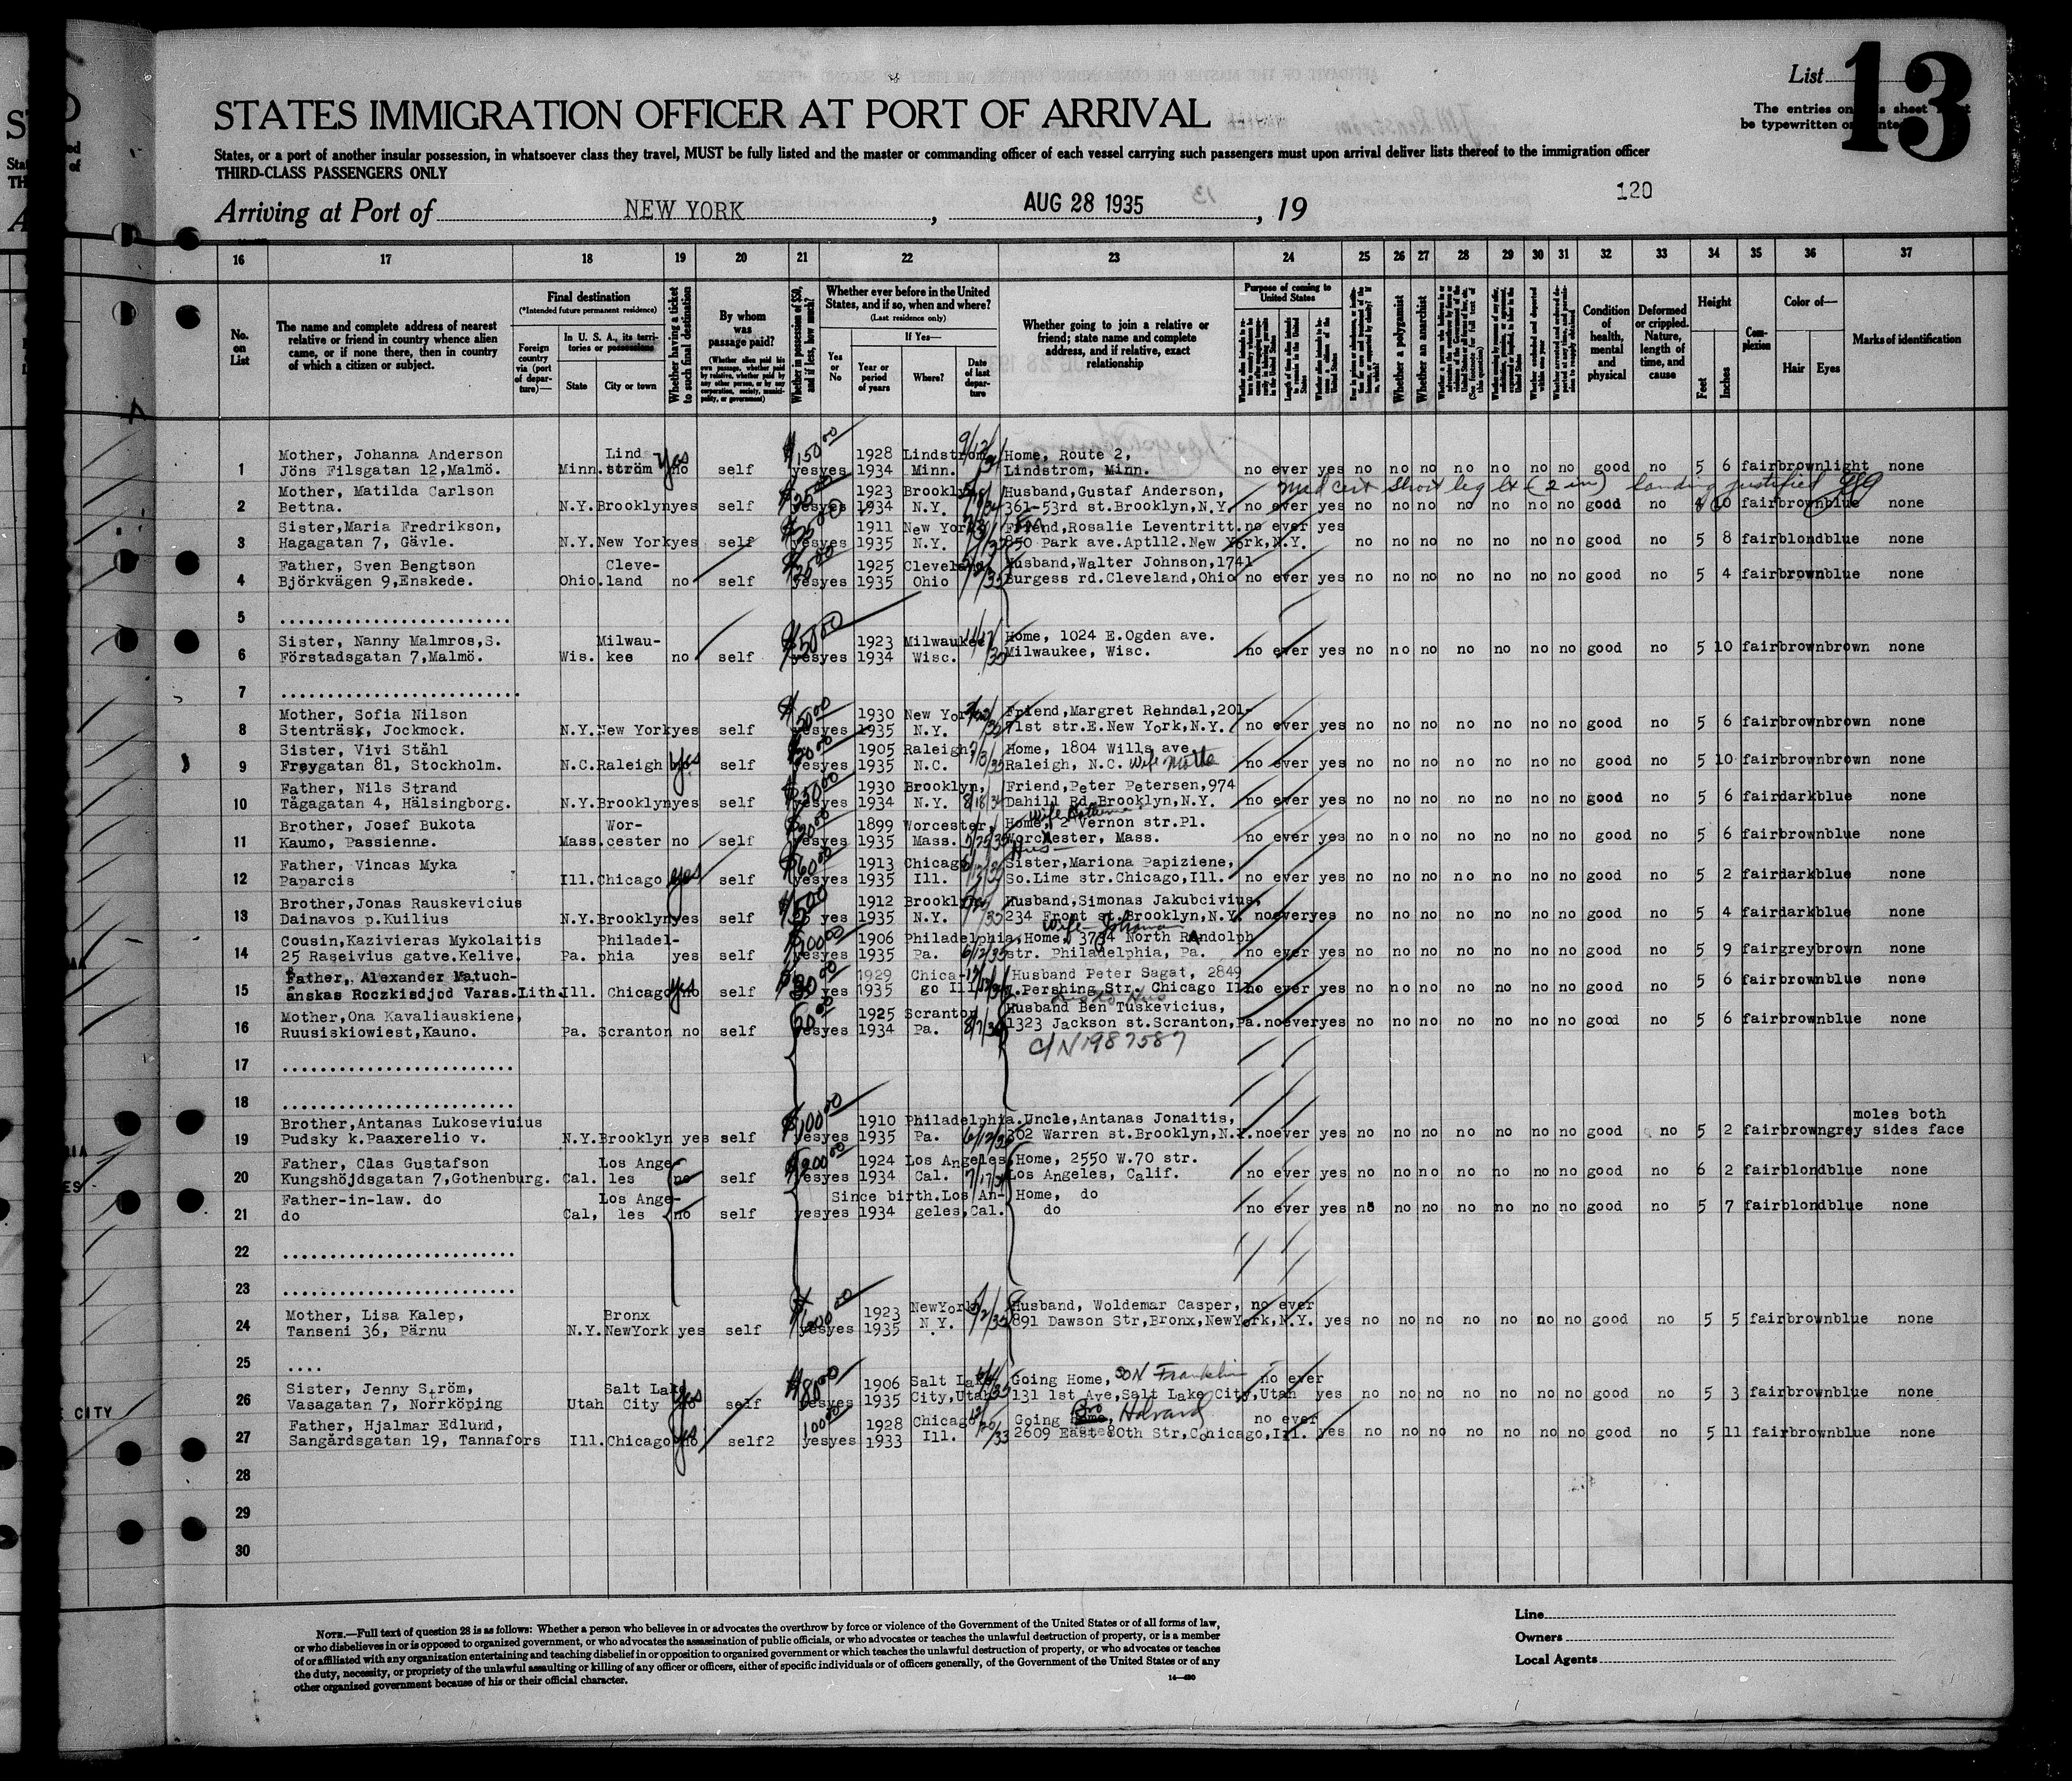 List 13
STATES IMMIGRATION OFFICER AT PORT OF ARRIVAL
The entries on
be typewritten or
States, or a port of another insular possession, in whatsoever class they travel, MUST be fully listed and the master or commanding officer of each vessel carrying such passengers must upon arrival deliver lists thereof to the immigration officer
THIRD-CLASS PASSENGERS ONLY
120
Arriving at Port of NEW YORK, AUG 28 1935, 19
16 17 18 19 20 21 22 23 24 25 26 27 28 29 30 31 32 33 34 35 36 37
No. on List
The name and complete address of nearest relative or friend in country whence alien came, or if none there, then in country of which a citizen or subject.
Final destination
(*Intended future permanent residence)
Foreign country via (port of departure)—
In U. S. A., its territories or possessions
State
City or town
Whether having a ticket to such final destination
By whom was passage paid?
(Whether alien paid his own passage, whether paid by relative, whether paid by any other person, or by any corporation, society, municipality, or government)
Whether in possession of $50, and if less, how much?
Whether ever before in the United States, and if so, when and where?
(Last residence only)
Yes or No
If Yes—
Year or period of years
Where?
Date of last departure
Whether going to join a relative or friend; state name and complete address, and if relative, exact relationship
Purpose of coming to United States
Whether a polygamist
Whether an anarchist
Condition of health, mental and physical
Deformed or crippled. Nature, length of time, and cause
Height
Feet
Inches
Complexion
Color of—
Hair
Eyes
Marks of identification
Mother, Johanna Anderson Lind 1928 Lindstrom Home, Route 2,
1 Jöns Filsgatan 12,Malmö. Minn. ström no yes self $150.00 yes yes 1934 Minn. Lindstrom, Minn. no ever yes no no no no no no no good no 5 6 fair brown light none
Med cert short leg lt (2 in) landing justified
Mother, Matilda Carlson 1923 Brooklyn Husband,Gustaf Anderson,
2 Bettna. N.Y. Brooklyn yes self yes yes 1934 N.Y. 361-53rd st.Brooklyn,N.Y. no ever yes no no no no no no no good no 10 fair brown blue none
Sister,Maria Fredrikson, 1911 New York Friend,Rosalie Leventritt. no ever yes
3 Hagagatan 7, Gävle. N.Y. New York yes self yes yes 1935 N.Y. 850 Park ave.Apt112.New York,N.Y. no no no no no no no good no 5 8 fair blond blue none
Father, Sven Bengtson Cleve- 1925 Cleveland Husband,Walter Johnson,1741
4 Björkvägen 9,Enskede. Ohio. land no self yes yes 1935 Ohio Burgess rd.Cleveland,Ohio no ever yes no no no no no no no good no 5 4 fair brown blue none
5 .........................
Sister, Nanny Malmros,S. Milwau- $50.00 1923 Milwaukee Home, 1024 E.Ogden ave.
6 Förstadsgatan 7,Malmö. Wis. kee no self yes yes 1934 Wisc. Milwaukee, Wisc. no ever yes no no no no no no no good no 5 10 fair brown brown none
7 .........................
Mother, Sofia Nilson $50.00 1930 New York Friend,Margret Rehndal,201-
8 Stenträsk, Jockmock. N.Y. New York yes self yes yes 1935 N.Y. 71st str.E.New York,N.Y. no ever yes no no no no no no no good no 5 6 fair brown brown none
Sister, Vivi Ståhl 1905 Raleigh, Home, 1804 Wills ave
9 Freygatan 81, Stockholm. N.C. Raleigh yes self yes yes 1935 N.C. Raleigh, N.C. Wife no ever yes no no no no no no no good no 5 10 fair brown brown none
Father, Nils Strand 1930 Brooklyn, Friend,Peter Petersen,974
10 Tågagatan 4, Hälsingborg. N.Y. Brooklyn yes self yes yes 1934 N.Y. 8/18/34 Dahill Rd.Brooklyn,N.Y. no ever yes no no no no no no no good no 5 6 fair dark blue none
Wife
Brother, Josef Bukota Wor- 1899 Worcester, Home, 2 Vernon str.Pl.
11 Kaumo, Passienne. Mass. cester no self yes yes 1935 Mass. 5/25/35 Worchester, Mass. no ever yes no no no no no no no good no 5 6 fair brown blue none
Father, Vincas Myka $60.00 1913 Chicago Sister,Mariona Papiziene,
12 Paparcis Ill. Chicago yes self yes yes 1935 Ill. So.Lime str.Chicago,Ill. no ever yes no no no no no no no good no 5 2 fair dark blue none
Brother,Jonas Rauskevicius 1912 Brooklyn Husband,Simonas Jakubcivius,
13 Dainavos p.Kuilius N.Y. Brooklyn yes self yes 1935 N.Y. 234 Front st.Brooklyn,N.Y. no ever yes no no no no no no no good no 5 4 fair dark blue none
Wife
Cousin,Kazivieras Mykolaitis Philadel- 1906 Philadelphia, Home, 3734 North Randolph
14 25 Raseivius gatve.Kelive. Pa. phia yes self yes yes 1935 Pa. 6/12/35 str. Philadelphia, Pa. no ever yes no no no no no no no good no 5 9 fair grey brown none
Father, Alexander Matuch- 1929 Chica- Husband Peter Sagat, 2849
15 anskas Roczkisdjod Varas.Lith. Ill. Chicago no yes self yes 1935 go Ill W.Pershing Str. Chicago Ill no ever yes no no no no no no no good no 5 6 fair brown blue none
Mother,Ona Kavaliauskiene, 1925 Scranton Husband Ben Tuskevicius,
16 Ruusiskiowiest,Kauno. Pa. Scranton no self yes yes 1934 Pa. 8/7/34 1323 Jackson st.Scranton,Pa. no ever yes no no no no no no no good no 5 6 fair brown blue none
C/N 1987587
17 .........................
18 .........................
moles both
Brother,Antanas Lukoseviuius $100.00 1910 Philadelphia. Uncle,Antanas Jonaitis,
19 Pudsky k.Paaxerelio v. N.Y. Brooklyn yes self yes yes 1935 Pa. 302 Warren st.Brooklyn,N.Y. no ever yes no no no no no no no good no 5 2 fair brown grey sides face
Father, Clas Gustafson Los Ange- $200.00 1924 Los Angeles, Home, 2550 W.70 str.
20 Kungshöjdsgatan 7,Gothenburg. Cal. les no self yes yes 1934 Cal. Los Angeles, Calif. no ever yes no no no no no no no good no 6 2 fair blond blue none
Father-in-law. do Los Ange- Since birth.Los An- Home, do
21 do Cal, les no self yes yes 1934 geles,Cal. do no ever yes no no no no no no no good no 5 7 fair blond blue none
22 .........................
23 .........................
Mother, Lisa Kalep, Bronx 1923 NewYork Husband, Woldemar Casper, no ever
24 Tanseni 36, Pärnu N.Y. NewYork yes self yes yes 1935 N.Y. 891 Dawson Str,Bronx,NewYork,N.Y. yes no no no no no no no good no 5 5 fair brown blue none
25 ....
Sister, Jenny Ström, Salt Lake 1906 Salt Lake Going Home, SON Franklin no ever
26 Vasagatan 7, Norrköping Utah City no yes self yes yes 1935 City,Utah 131 1st Ave,Salt Lake City,Utah yes no no no no no no no good no 5 3 fair brown blue none
Father, Hjalmar Edlund, 100.00 1928 Chicago Going Home, no ever
27 Sangårdsgatan 19, Tannafors Ill. Chicago no yes self2 yes yes 1933 Ill. 2609 East 80th Str,Cohicago,Ill. yes no no no no no no no good no 5 11 fair brown blue none
28
29
30
CITY
NOTE.—Full text of question 28 is as follows: Whether a person who believes in or advocates the overthrow by force or violence of the Government of the United States or of all forms of law,
or who disbelieves in or is opposed to organized government, or who advocates the assassination of public officials, or who advocates or teaches the unlawful destruction of property, or is a member
of or affiliated with any organization entertaining and teaching disbelief in or opposition to organized government or which teaches the unlawful destruction of property, or who advocates or teaches
the duty, necessity, or propriety of the unlawful assaulting or killing of any officer or officers, either of specific individuals or of officers generally, of the Government of the United States or of any
other organized government because of his or their official character.
14—420
Line
Owners
Local Agents